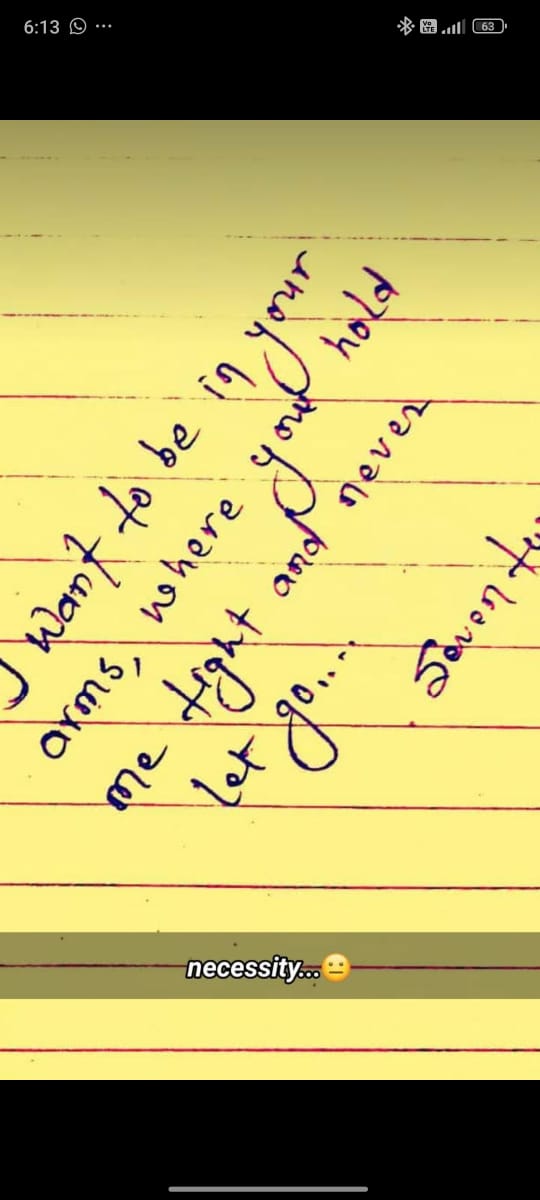 6:13
Vo LTE
63
I want to be in your
arms, where you hold
me tight and never
let go....
necessity...😐